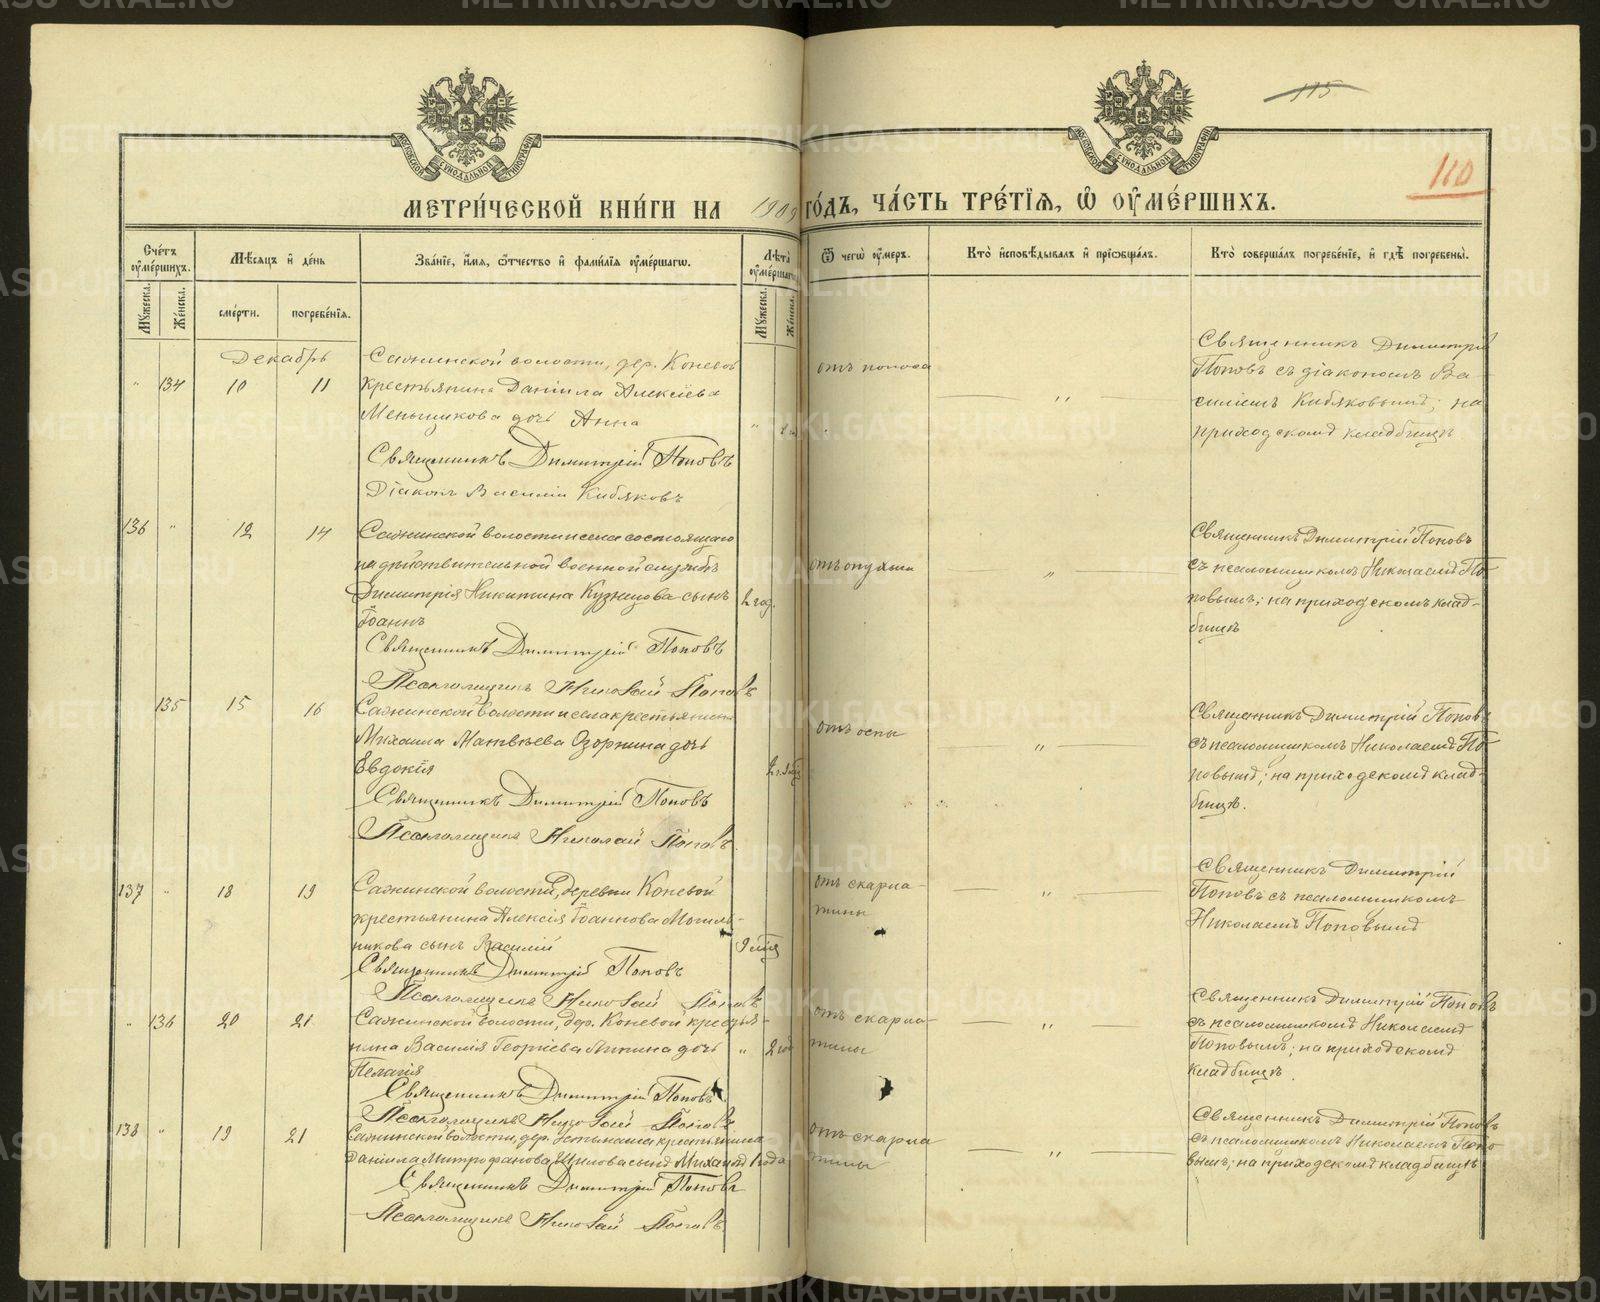 115
110
МЕТРИ́ЧЕСКОЙ КНИ́ГИ НА 1909 ГО́ДЪ, ЧА́СТЬ ТРЕ́ТЇѦ, Ѡ҆ ОУ҆МЕ́РШИХЪ.
Сче́тъ оу҆ме́ршихъ.
Мѣ́сѧцъ и҆ де́нь
Зва́нїе, и҆́мѧ, ѻ҆́тчество и҆ фами́лїѧ оу҆ме́ршагѡ.
Лѣ́та оу҆ме́ршагѡ
Ѿ чегѡ̀ оу҆́меръ.
Кто̀ и҆сповѣ́дывалъ и҆ прїѡбща́лъ.
Кто̀ соверша́лъ погребе́нїе, и҆ гдѣ̀ погребены̀.
Мꙋ́жеска.
Же́нска.
сме́рти.
погребе́нїѧ.
Мꙋ́жеска.
Же́нска.
Декабрь
" 134 10 11
Сажинской волости, дер. Коневой
крестьянина Даніила Алексіева
Меньшикова дочь Анна
Священникъ Димитрій Поповъ
Діаконъ Василій Кибяковъ
отъ поноса
Священникъ Димитрій
Поповъ съ діакономъ Ва-
силіемъ Кибяковымъ; на
приходскомъ кладбищѣ
136 " 12 14
Сажинской волости и села состоящаго
на дѣйствительной военной службѣ
Димитрія Никитина Кузнецова сынъ
Іоаннъ
2 год.
Священникъ Димитрій Поповъ
Псаломщикъ Николай Поповъ
отъ опухоли
Священникъ Димитрій Поповъ
съ псаломщикомъ Николаемъ По-
повымъ; на приходскомъ клад-
бищѣ
135 15 16
Сажинской волости и села крестьянина
Михаила Матвѣева Озорнина дочь
Евдокія
Священникъ Димитрій Поповъ
Псаломщикъ Николай Поповъ
отъ оспы
Священникъ Димитрій Поповъ
съ псаломщикомъ Николаемъ По-
повымъ; на приходскомъ клад-
бищѣ.
137 " 18 19
Сажинской волости, деревни Коневой
крестьянина Алексія Іоаннова Могиль-
никова сынъ Василій
Священникъ Димитрій Поповъ
Псаломщикъ Николай Поповъ
отъ скарла-
тины
Священникъ Димитрій
Поповъ съ псаломщикомъ
Николаемъ Поповымъ
" 136 20 21
Сажинской волости, дер. Коневой крестья-
нина Василія Георгіева Липина дочь
Пелагія
" 2 год
Священникъ Димитрій Поповъ
Псаломщикъ Николай Поповъ
отъ скарла-
тины
Священникъ Димитрій Поповъ
съ псаломщикомъ Николаемъ
Поповымъ; на приходскомъ
кладбищѣ.
138 " 19 21
Сажинской волости, дер. крестьянина
Даніила Митрофанова Шилова сынъ Михаилъ 1 года
Священникъ Димитрій Поповъ
Псаломщикъ Николай Поповъ
отъ скарла
тины
Священникъ Димитрій Поповъ
съ псаломщикомъ Николаемъ Попо
вымъ; на приходскомъ кладбищѣ
METRIKI.GASO-URAL.RU